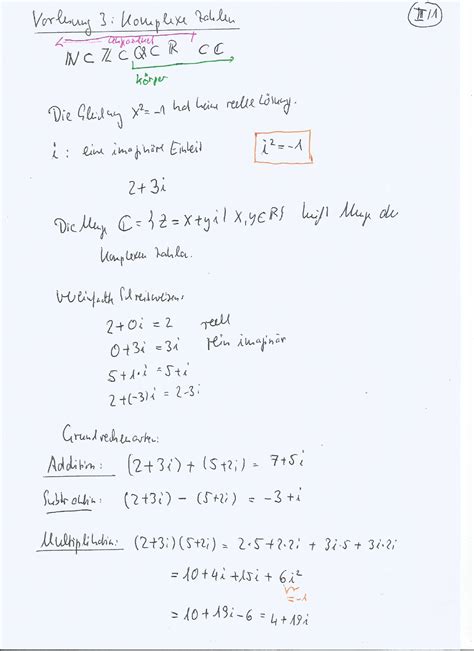 Vorlesung 3: Komplexe Zahlen
III/1
angeordnet
ℕ ⊂ ℤ ⊂ ℚ ⊂ ℝ ⊂ ℂ
Körper
Die Gleichung x² = -1 hat keine reelle Lösung.
i : eine imaginäre Einheit
i² = -1
2+3i
Die Menge ℂ = { z = x + yi | x, y ∈ ℝ } heißt Menge der
komplexen Zahlen.
Vereinfachte Schreibweisen:
2+0i = 2 reell
0+3i = 3i rein imaginär
5+1·i = 5+i
2+(-3)i = 2-3i
Grundrechenarten:
Addition: (2+3i) + (5+2i) = 7+5i
Subtraktion: (2+3i) - (5+2i) = -3+i
Multiplikation: (2+3i)(5+2i) = 2·5+2·2i + 3i·5 + 3i·2i
= 10+4i+15i + 6i²
= -1
= 10+19i-6 = 4+19i